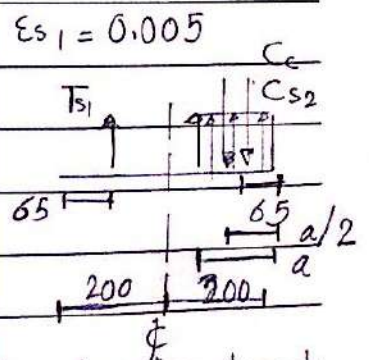 εs1 = 0.005
Cc
Ts1 Cs2
65 65
a/2
a
200 200
℄